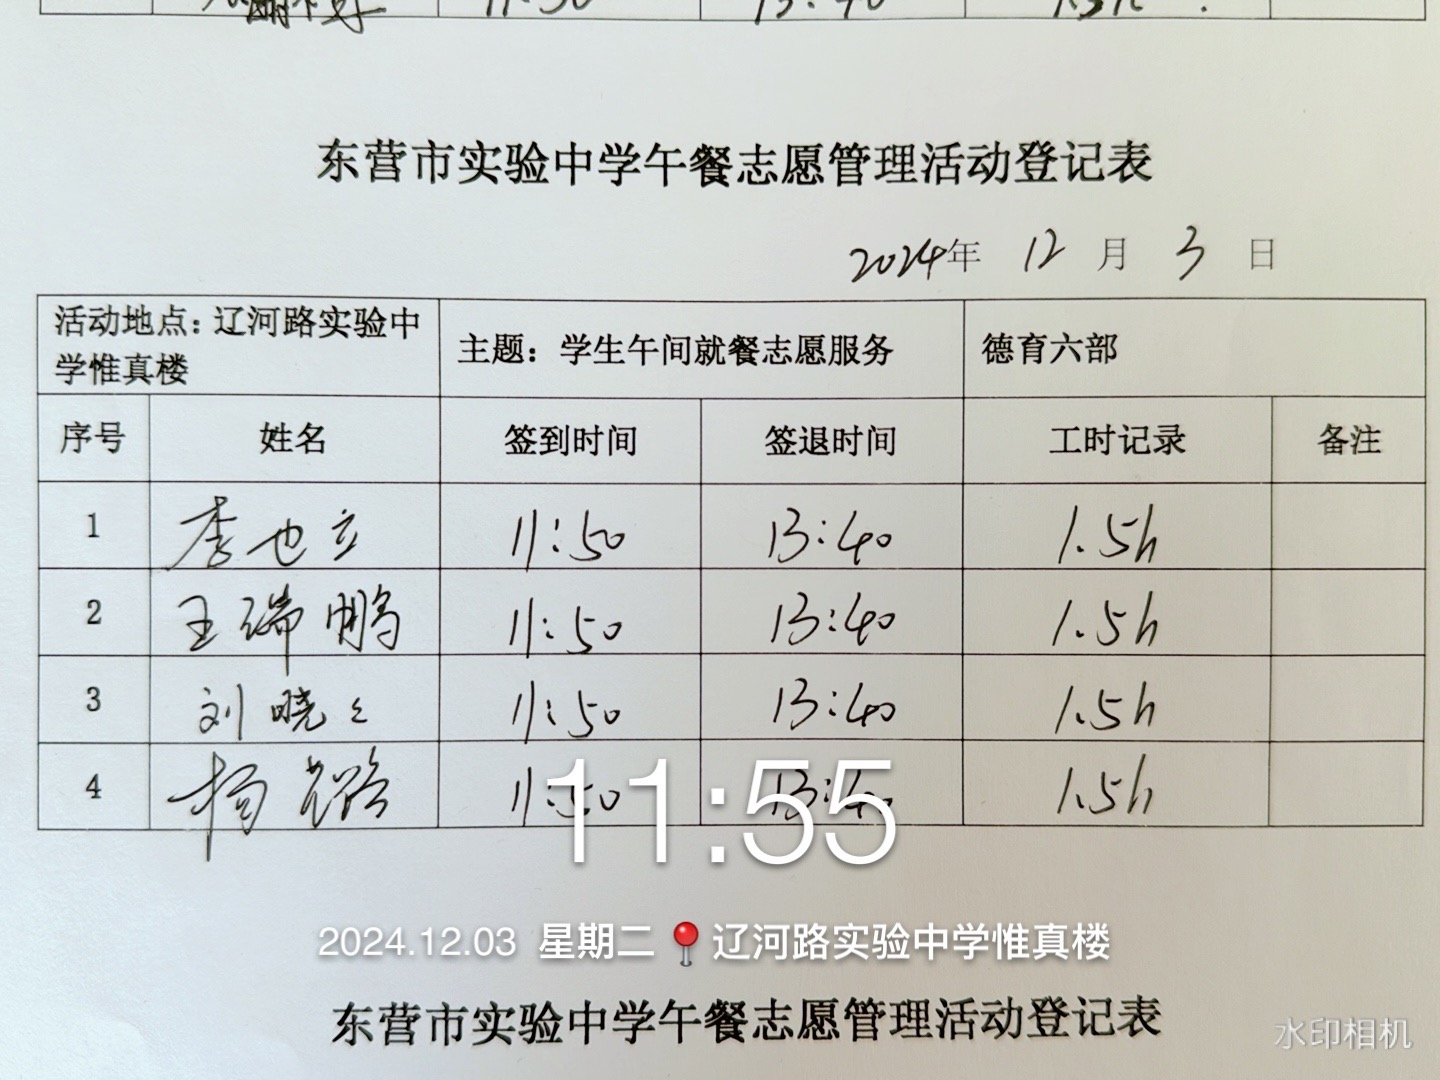 11:50 13:40 1.5h
东营市实验中学午餐志愿管理活动登记表
2024年 12 月 3 日
活动地点：辽河路实验中
学惟真楼
主题：学生午间就餐志愿服务
德育六部
序号 姓名 签到时间 签退时间 工时记录 备注
1 李也立 11:50 13:40 1.5h
2 王瑞鹏 11:50 13:40 1.5h
3 刘晓 11:50 13:40 1.5h
4 杨 11:50 13:40 1.5h
11:55
2024.12.03 星期二 辽河路实验中学惟真楼
东营市实验中学午餐志愿管理活动登记表
水印相机